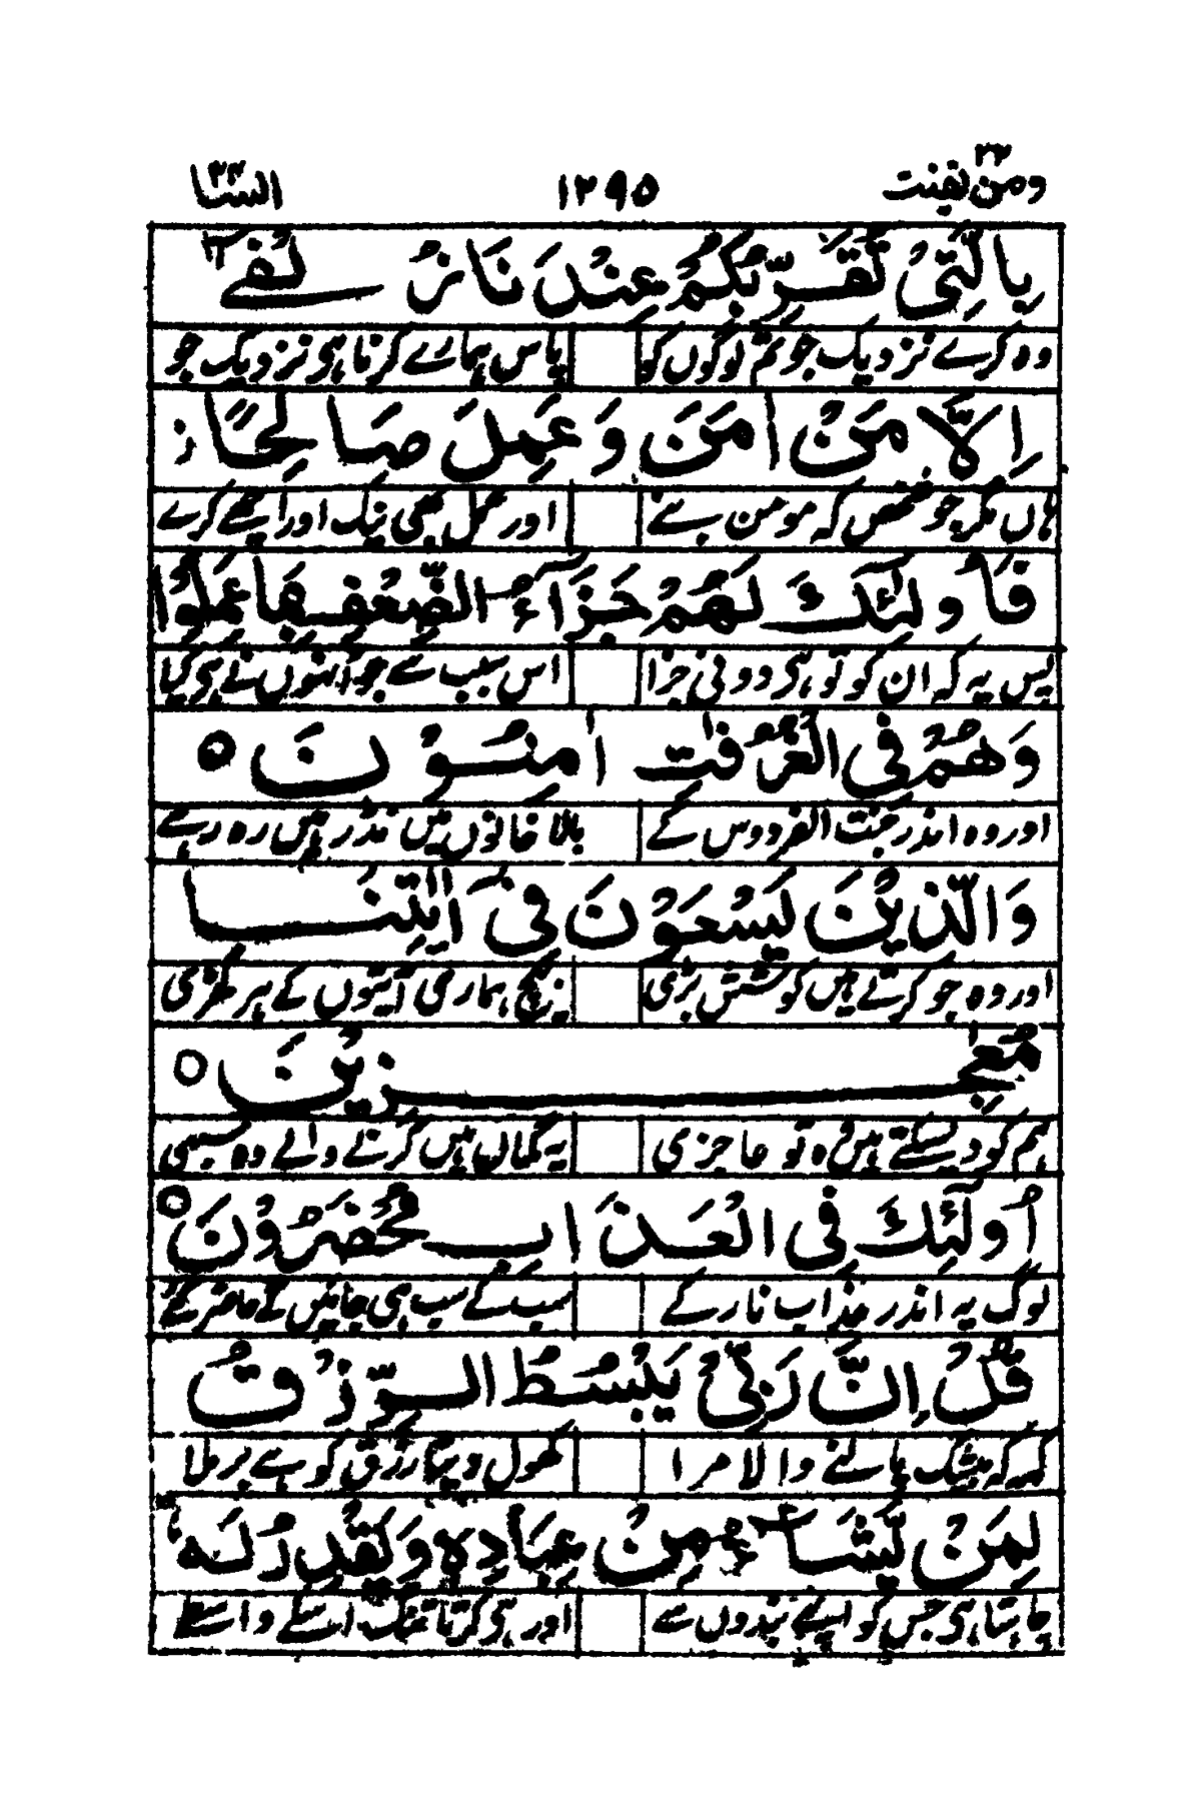 ومن يقنت ٢٢ ١٢٩٥ السبا ٣٤
بِالَّتِىْ تُقَرِّبُكُمْ عِنْدَنَا زُلْفٰىٓ
وہ کرے نزدیک جو تم لوگوں کو پاس ہمارے کرنا ہی نزدیک جو
اِلَّا مَنْ اٰمَنَ وَعَمِلَ صَالِحًا ز
ہاں مگر جو شخص کہ مومن بنے اور عمل بھی نیک اور اچھے کرے
فَاُولٰٓئِكَ لَهُمْ جَزَآءُ الضِّعْفِ بِمَا عَمِلُوْا
پس یہ کہ ان کو تو ہی دوئی جزا اس سبب سے جو انہوں نے ہی کیا
وَهُمْ فِى الْغُرُفٰتِ اٰمِنُوْنَ ٥
اور وہ اندر جنت الفردوس کے بالا خانوں میں نڈر ہیں رہ رہے
وَالَّذِيْنَ يَسْعَوْنَ فِىْٓ اٰيٰتِنَا
اور وہ جو کرتے ہیں کوشش بڑی بیچ ہماری آیتوں کے ہر گھڑی
مُعٰجِزِيْنَ ٥
ہم کو دے سکتے ہیں وہ تو عاجزی یہ گماں ہیں کرنے والے وہ سبھی
اُولٰٓئِكَ فِى الْعَذَابِ مُحْضَرُوْنَ ٥
لوگ یہ اندر عذاب نار کے سب کے سب ہی جائیں گے حاضر کئے
قُلْ اِنَّ رَبِّىْ يَبْسُطُ الرِّزْقَ
کہہ کہ بیشک پالنے والا مرا کھول دیتا رزق کو ہے برملا
لِمَنْ يَّشَآءُ مِنْ عِبَادِهٖ وَيَقْدِرُ لَهٗ
چاہتا ہی جس کو اپنے بندوں سے اور ہی کرتا تنگ اسکے واسطے